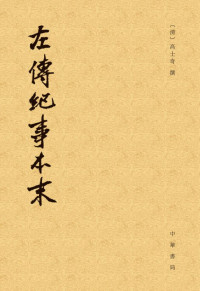 左傳紀事本末
〔清〕高士奇 撰
中華書局